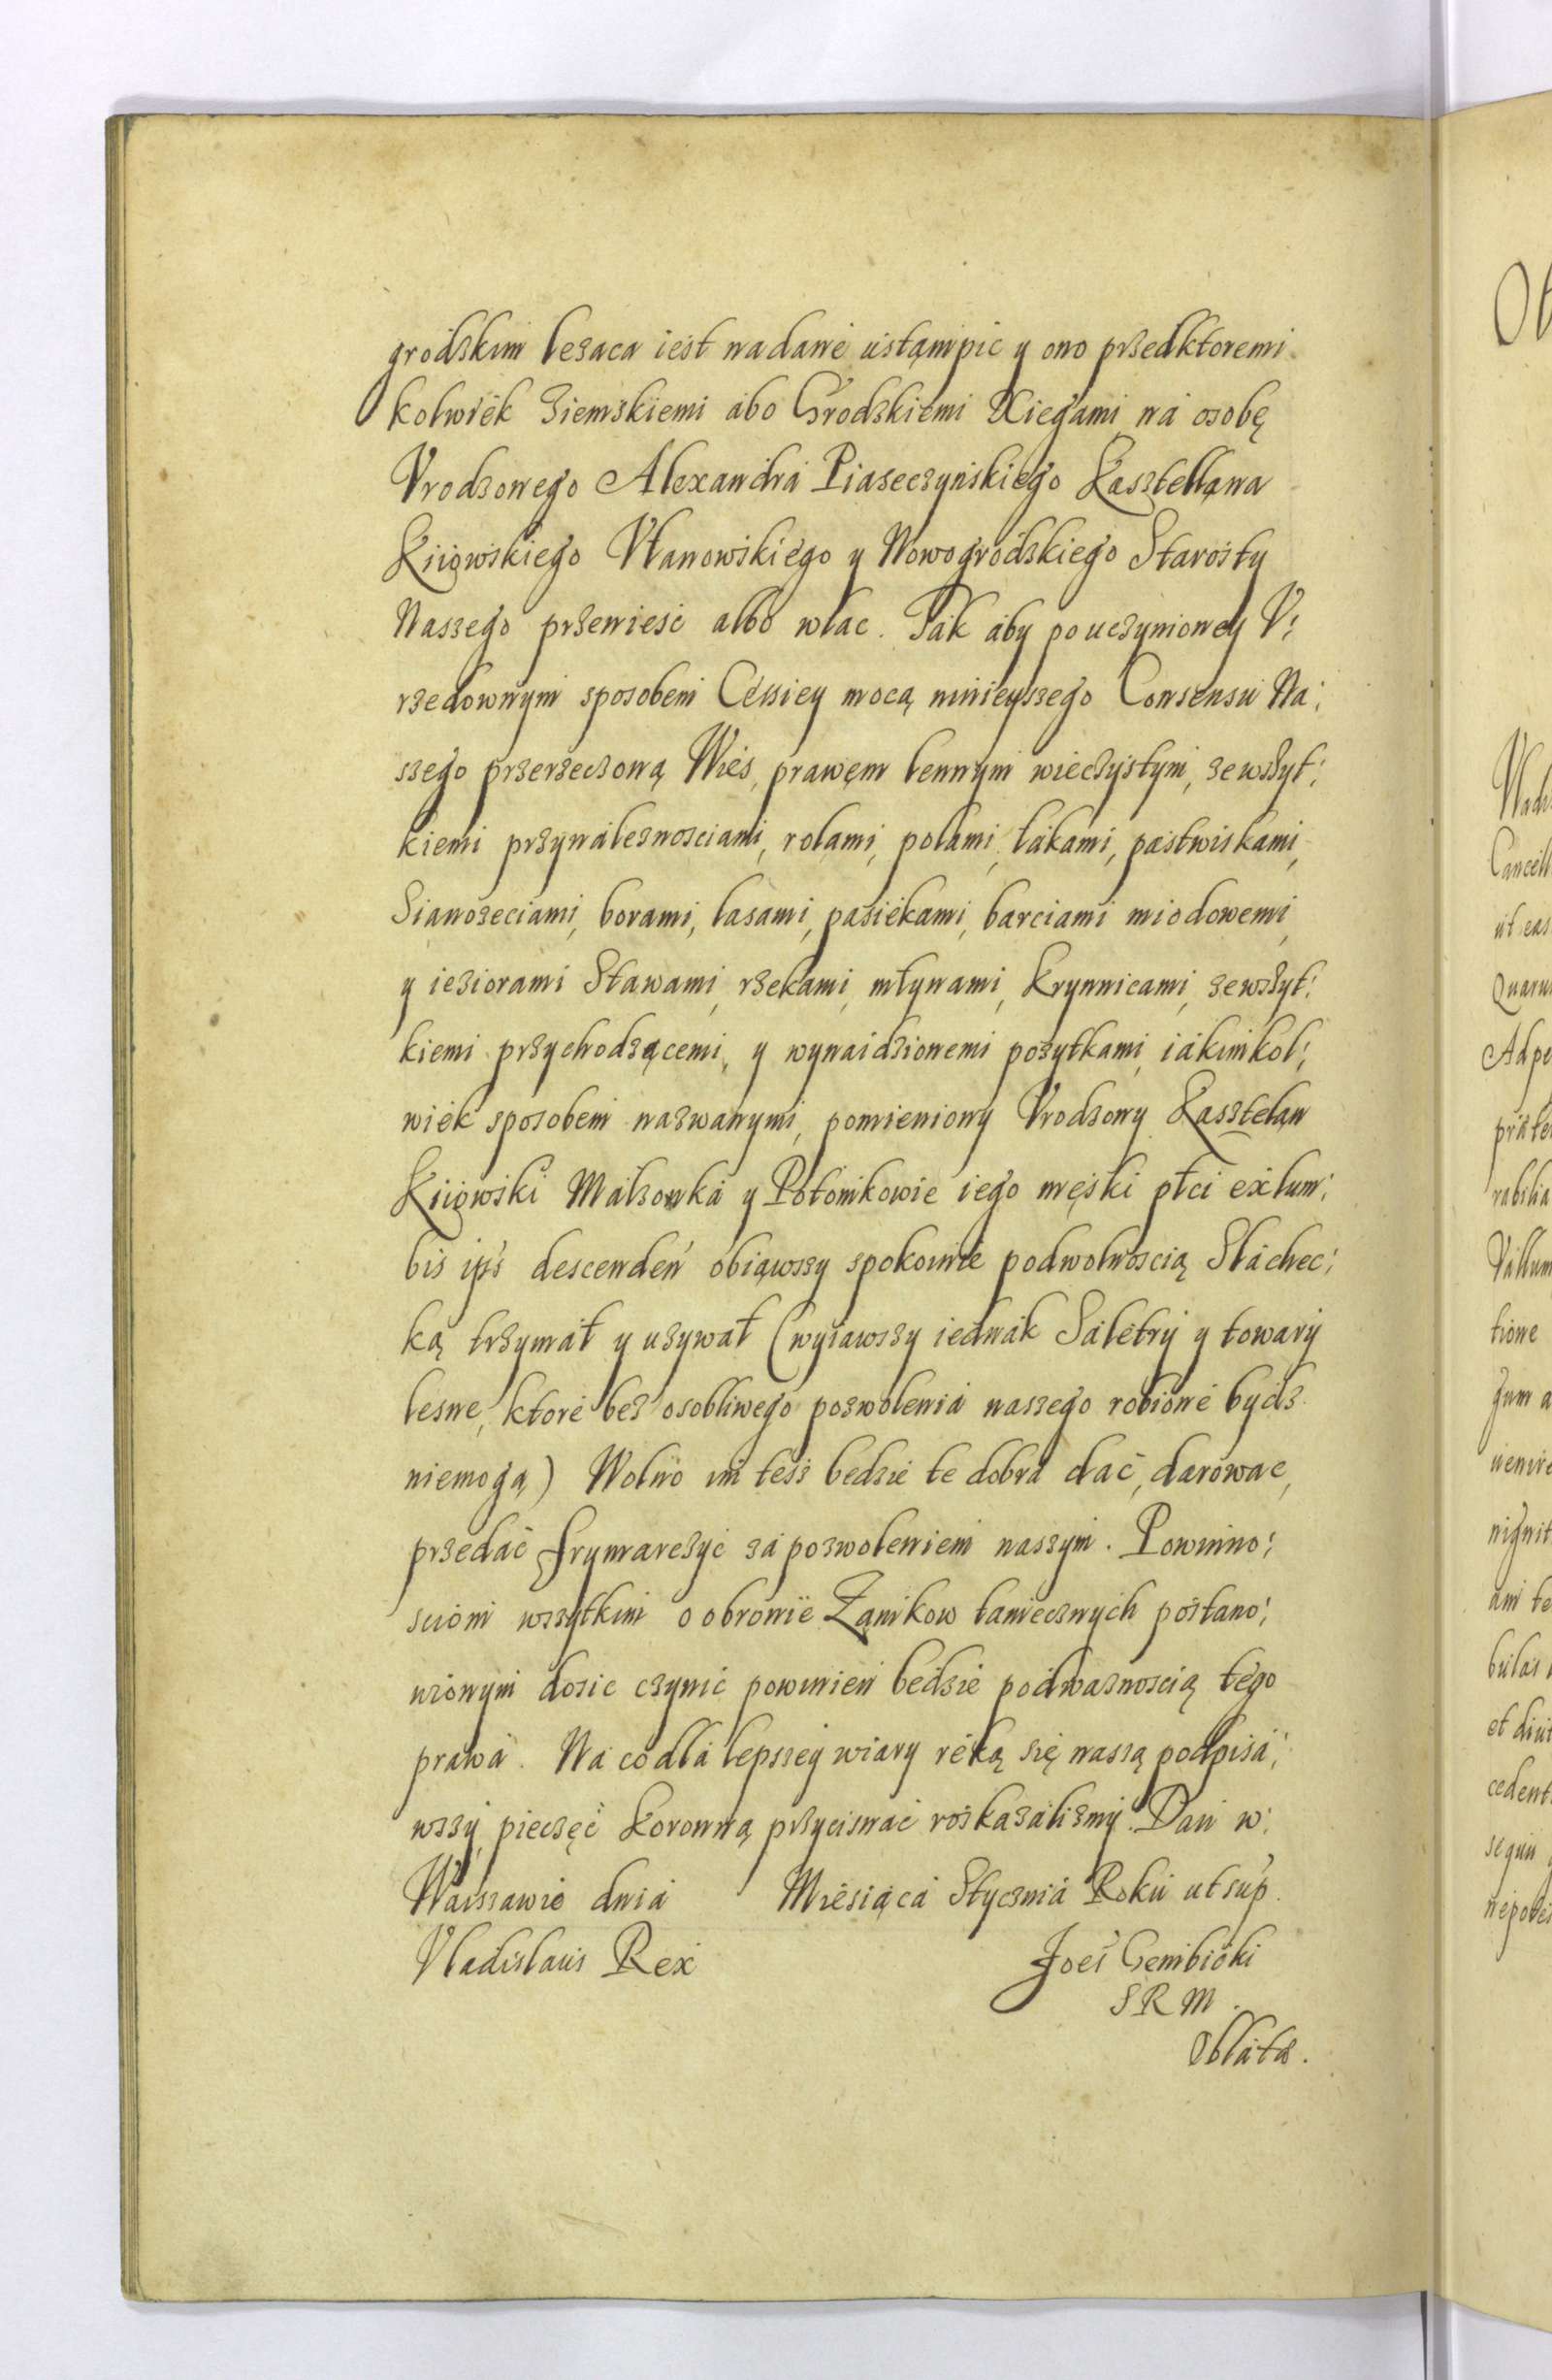 grodzkim lezaca iest nadane ustąmpic y ono przedktoremi
kolwiek ziemskiemi abo Grodzkiemi Xiegami na osobę
Vrodzonego Alexandra Piaseczynskiego Kasztellana
Kiiowskiego Vłanowskiego y Nowogrodzkiego Starosty
Naszego przeniesc albo wlac. Tak aby po uczynioney V:
rzedownym sposobem Cessiey mocą ninieyszego Consensu Na:
szego przerzeczoną Wies, prawem lennym wieczystym, ze wszyt:
kiemi przynaleznosciami, rolami, polami, łakami, pastwiskami,
Sianozeciami, borami, lasami, pasiekami, barciami miodowemi,
y ieziorami Stawami, rzekami, młynami, Krynnicami, zewszyt:
kiemi przychodzącemi, y wynaidzionemi pozytkami, iakimkol:
wiek sposobem nazwanymi, pomieniony Vrodzony Kasztelan
Kiiowski Małzonka y Potomkowie iego męski płci exlum:
bis ips descenden obiąwszy spokoinie podwolnoscią Slachec:
ką trzymał y uzywał (wyiawszy iednak Saletry y towary
lesne, ktore bez osobliwego pozwolenia naszego robione bydz
niemogą) Wolno im tesz bedzie te dobra dać, darowac,
przedać frymarczyc za pozwoleniem naszym. Powinno:
sciom wszytkim o obronie Zamkow tamecznych postano:
wionym dosic czynic powinien bedzie podwaznoscią tego
prawa. Na co dla lepszey wiary reką się naszą podpisa:
wszy, pieczęć Koronną przycisnać roskazalismy. Dan w:
Warszawie dnia Miesiąca Stycznia Roku ut sup.
Vladislaus Rex Joes Gembicki
S R M.
Oblata.